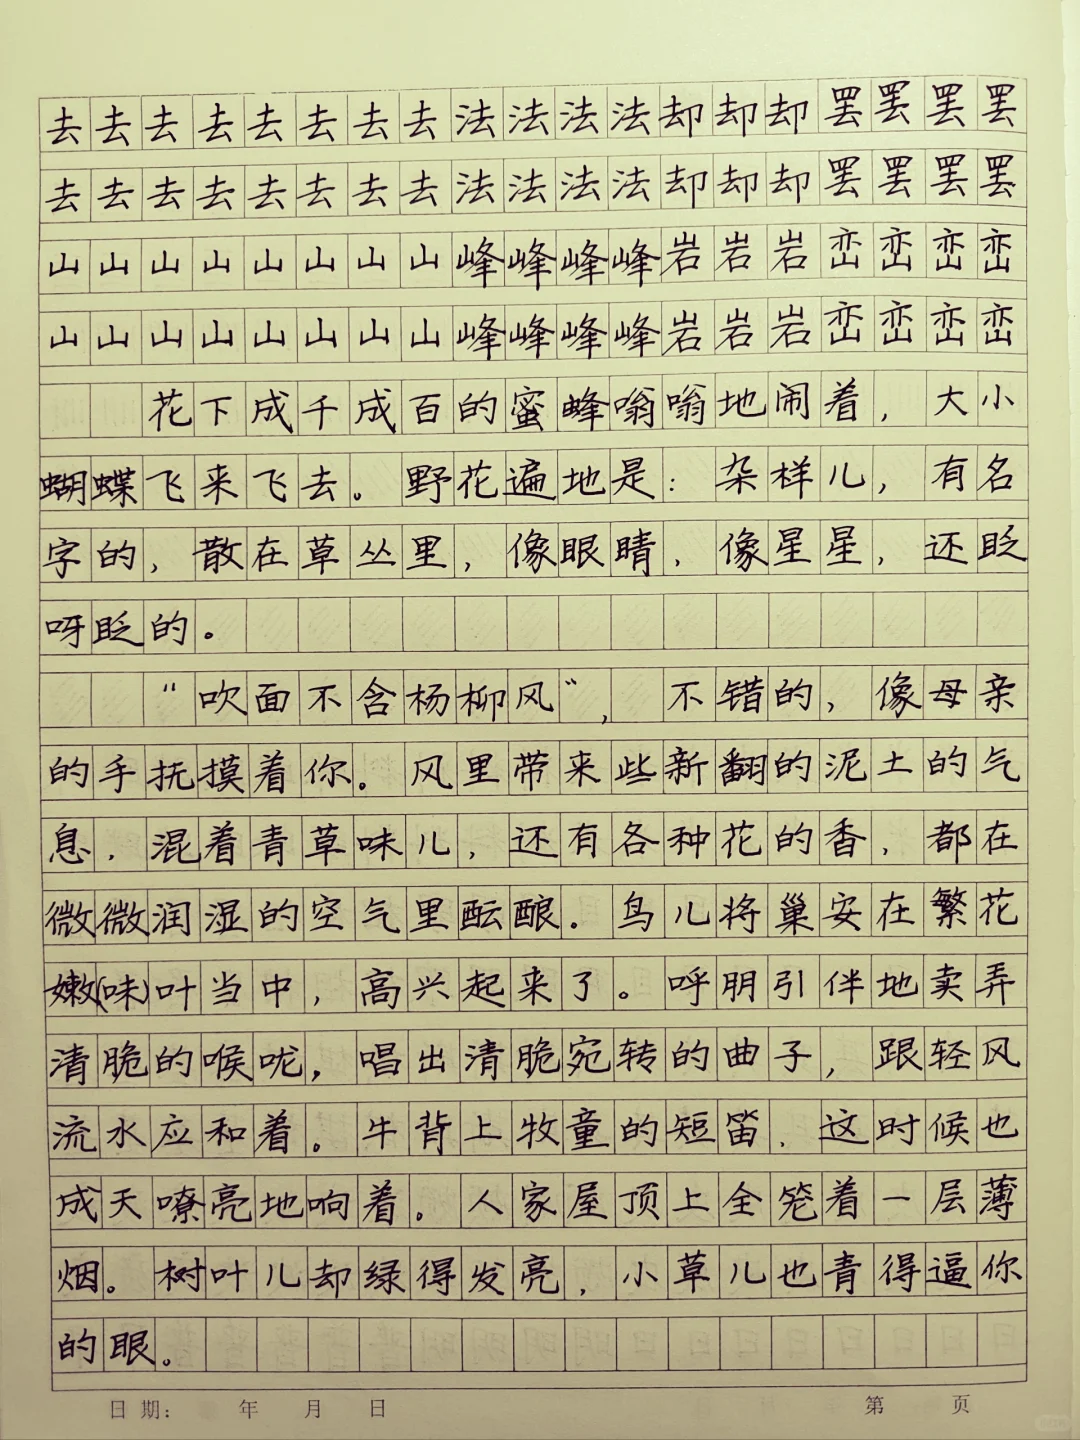 去去去去去去去去法法法法却却却罢罢罢罢
去去去去去去去去法法法法却却却罢罢罢罢
山山山山山山山山峰峰峰峰岩岩岩峦峦峦峦
山山山山山山山山峰峰峰峰岩岩岩峦峦峦峦
花下成千成百的蜜蜂嗡嗡地闹着，大小
蝴蝶飞来飞去。野花遍地是：杂样儿，有名
字的，散在草丛里，像眼睛，像星星，还眨
呀眨的。
“吹面不含杨柳风”，不错的，像母亲
的手抚摸着你。风里带来些新翻的泥土的气
息，混着青草味儿，还有各种花的香，都在
微微润湿的空气里酝酿．鸟儿将巢安在繁花
嫩(味)叶当中，高兴起来了。呼朋引伴地卖弄
清脆的喉咙，唱出清脆宛转的曲子，跟轻风
流水应和着。牛背上牧童的短笛，这时候也
成天嘹亮地响着。人家屋顶上全笼着一层薄
烟。树叶儿却绿得发亮，小草儿也青得逼你
的眼。
日期： 年 月 日 第 页